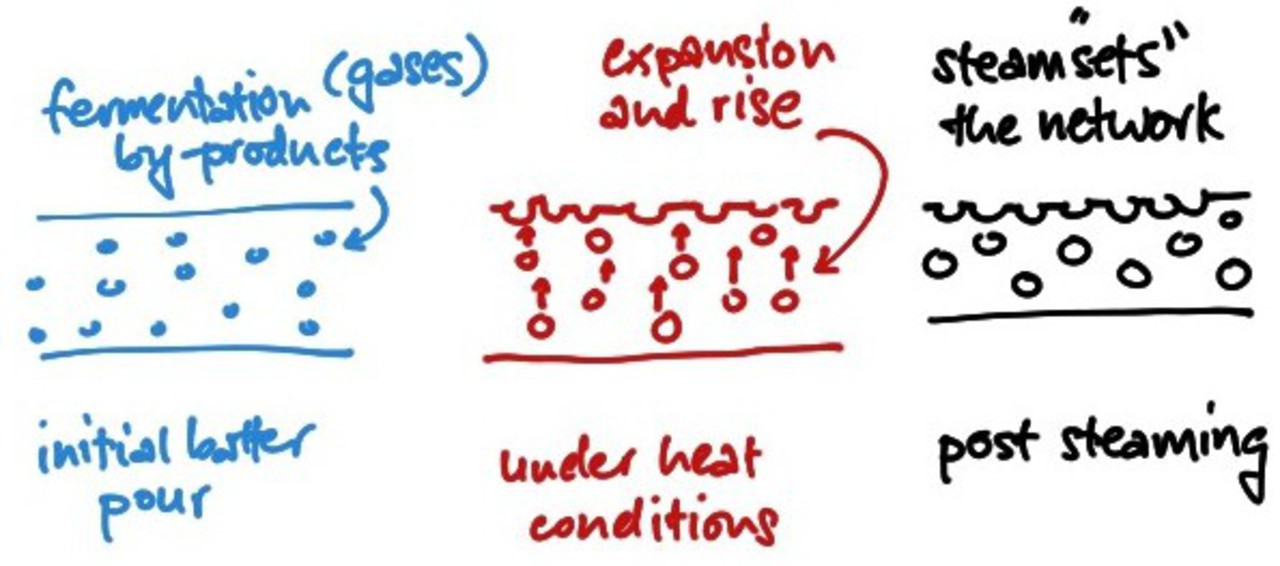 fermentation (gases)
by-products
initial batter
pour
expansion
and rise
under heat
conditions
steam "sets"
the network
post steaming